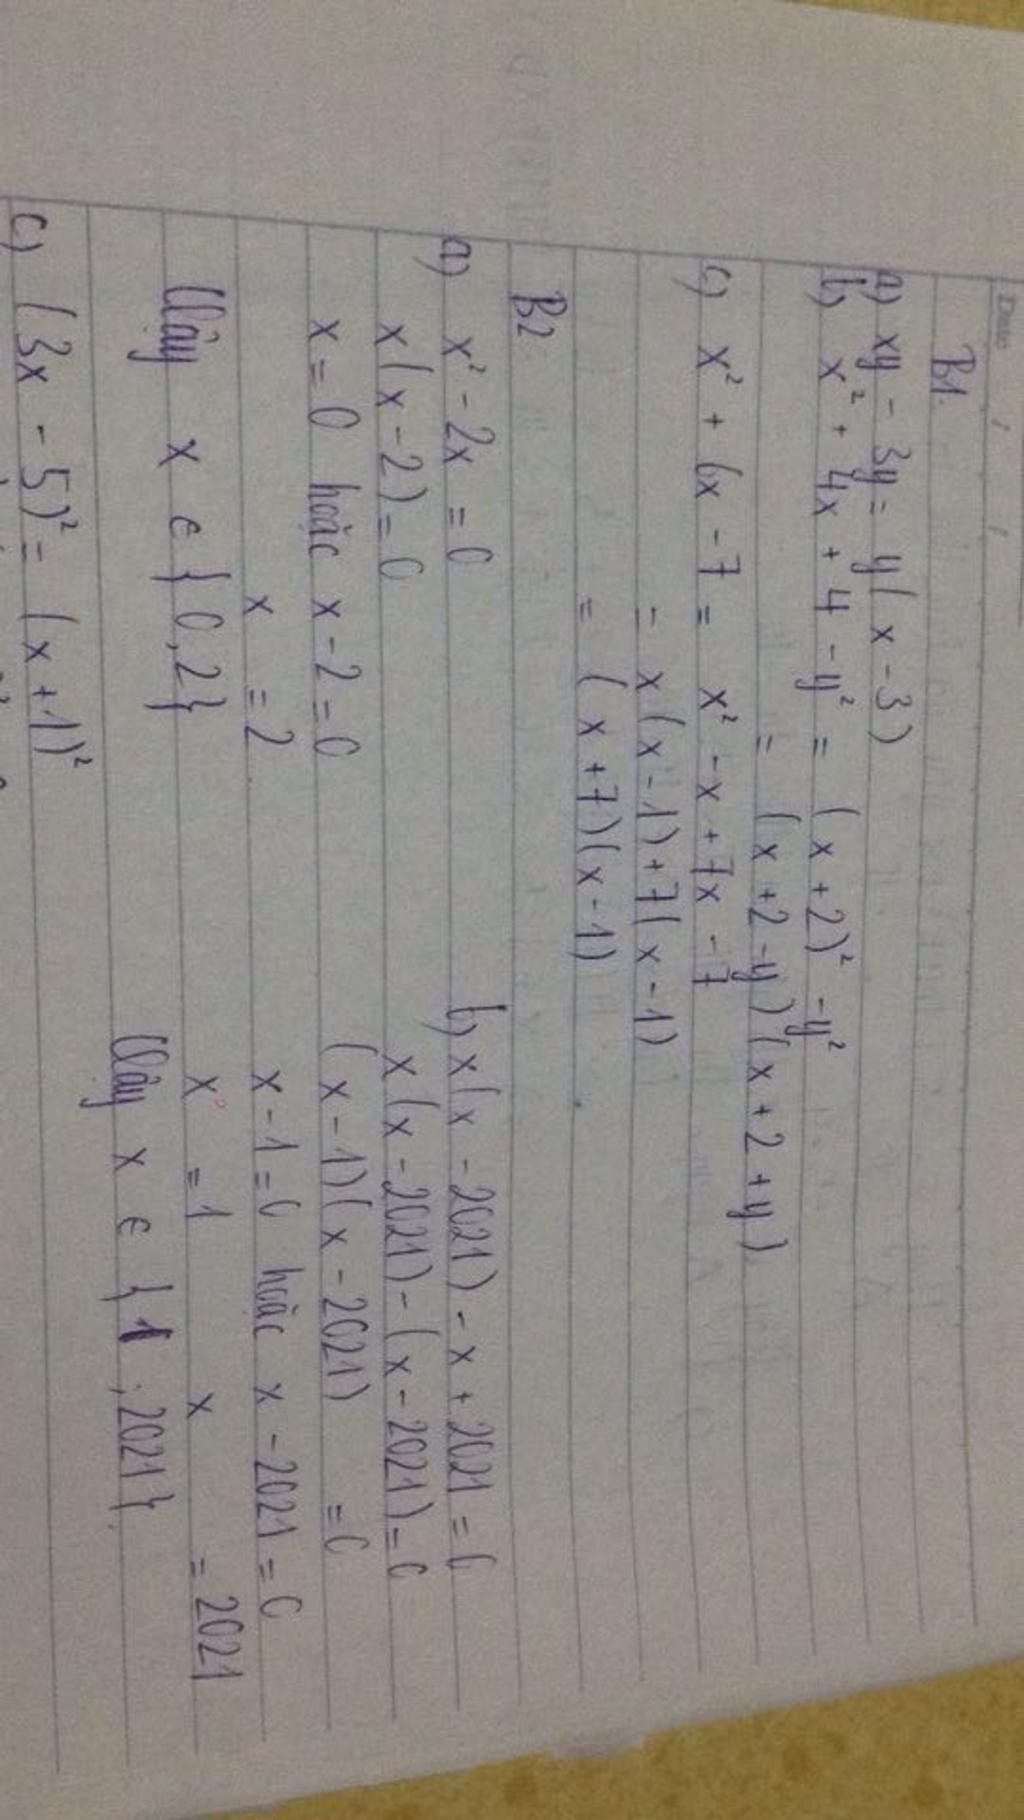 B1.
a) xy - 3y = y(x - 3)
b) x² + 4x + 4 - y² = (x + 2)² - y²
= (x + 2 - y)(x + 2 + y)
c) x² + 6x - 7 = x² - x + 7x - 7
= x(x - 1) + 7(x - 1)
= (x + 7)(x - 1)
B2.
a) x² - 2x = 0
x(x - 2) = 0
x = 0 hoặc x - 2 = 0
x = 2
Vậy x ∈ {0, 2}
b) x(x - 2021) - x + 2021 = 0
x(x - 2021) - (x - 2021) = 0
(x - 1)(x - 2021) = 0
x - 1 = 0 hoặc x - 2021 = 0
x = 1 x = 2021
Vậy x ∈ {1; 2021}
c) (3x - 5)² = (x + 1)²